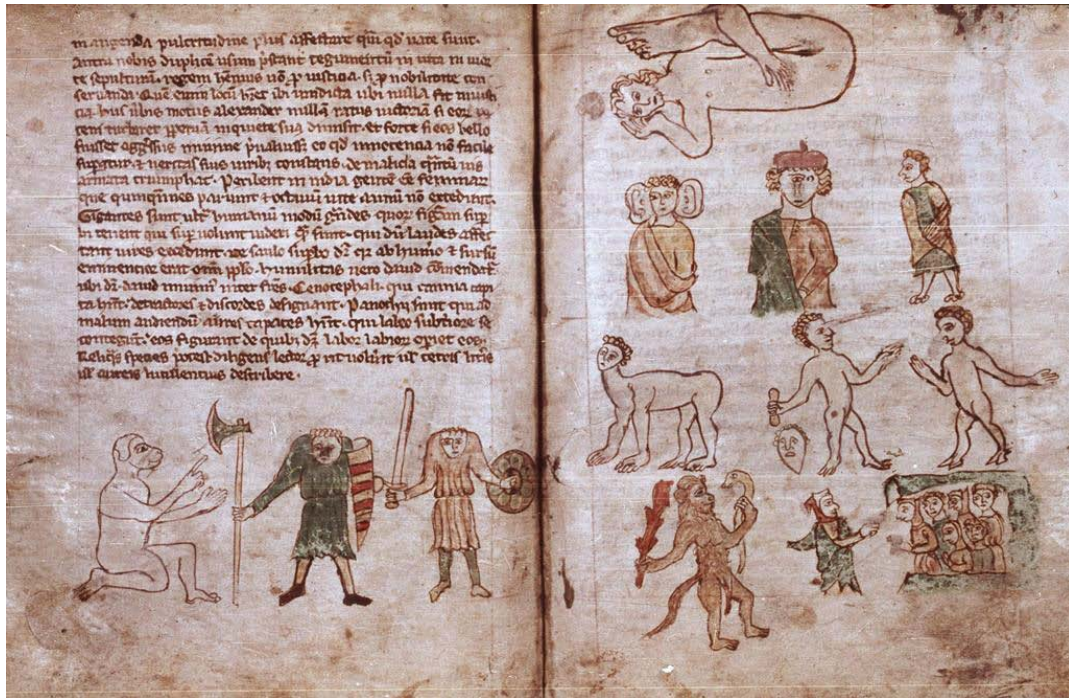 in augenda pulcritudine pl'us affectare qm̄ qd' uate sunt.
Antra nobis duplicē usum p̄stant tegumentū in uita in mor
te sepulturā. regem hēmus nō p̄ iusticia. sȝ p̄ nobilitate con
seruanda. Quē enim locū hēt ibi uindicta ubi nulla fit iniusti
cia. hiis ūbis motus alexander nullā ratus uictoriā si eoꝝ
tem turbaret ppetuā in quiete sua dimisit. et forte si eos bello
fuisset aggssus minime p̄ualuisset eo qd' innocencia nō facile
supatur. & ueritas suis uiribȝ constans. de malicia
armata triumphat. Peribent in india gentē ēē feminaꝝ
que quinquēnes pariunt & octauū uite annū nō excedunt.
Gigantes sunt ult̄ humanū modū gn̄des. quoꝝ figurā supbi
bi tenent qui sup̄ uolunt uideri q̄ sunt. qui dū laudes affec
tant uires excedunt. ut saulo supbo dr̄ qr ab humo & sursū
eminencior erat om̄i pplo. humilitas uero dauid cōmendat̄
ubi dr̄. dauid minim' inter frēs. Cenocephali. qui canina capi
ta hn̄t. detractores & discordes designant. Panothii sunt qui ad
malum audiendū aures capaces hn̄t. qui laleo subtiore se
contegūt. eos figurant de quibȝ dr̄ labor labioꝝ opiet eos.
Reliqs species potest diligens lector p̄ ut uolūit ul' ceteris
ul' aureis describere.